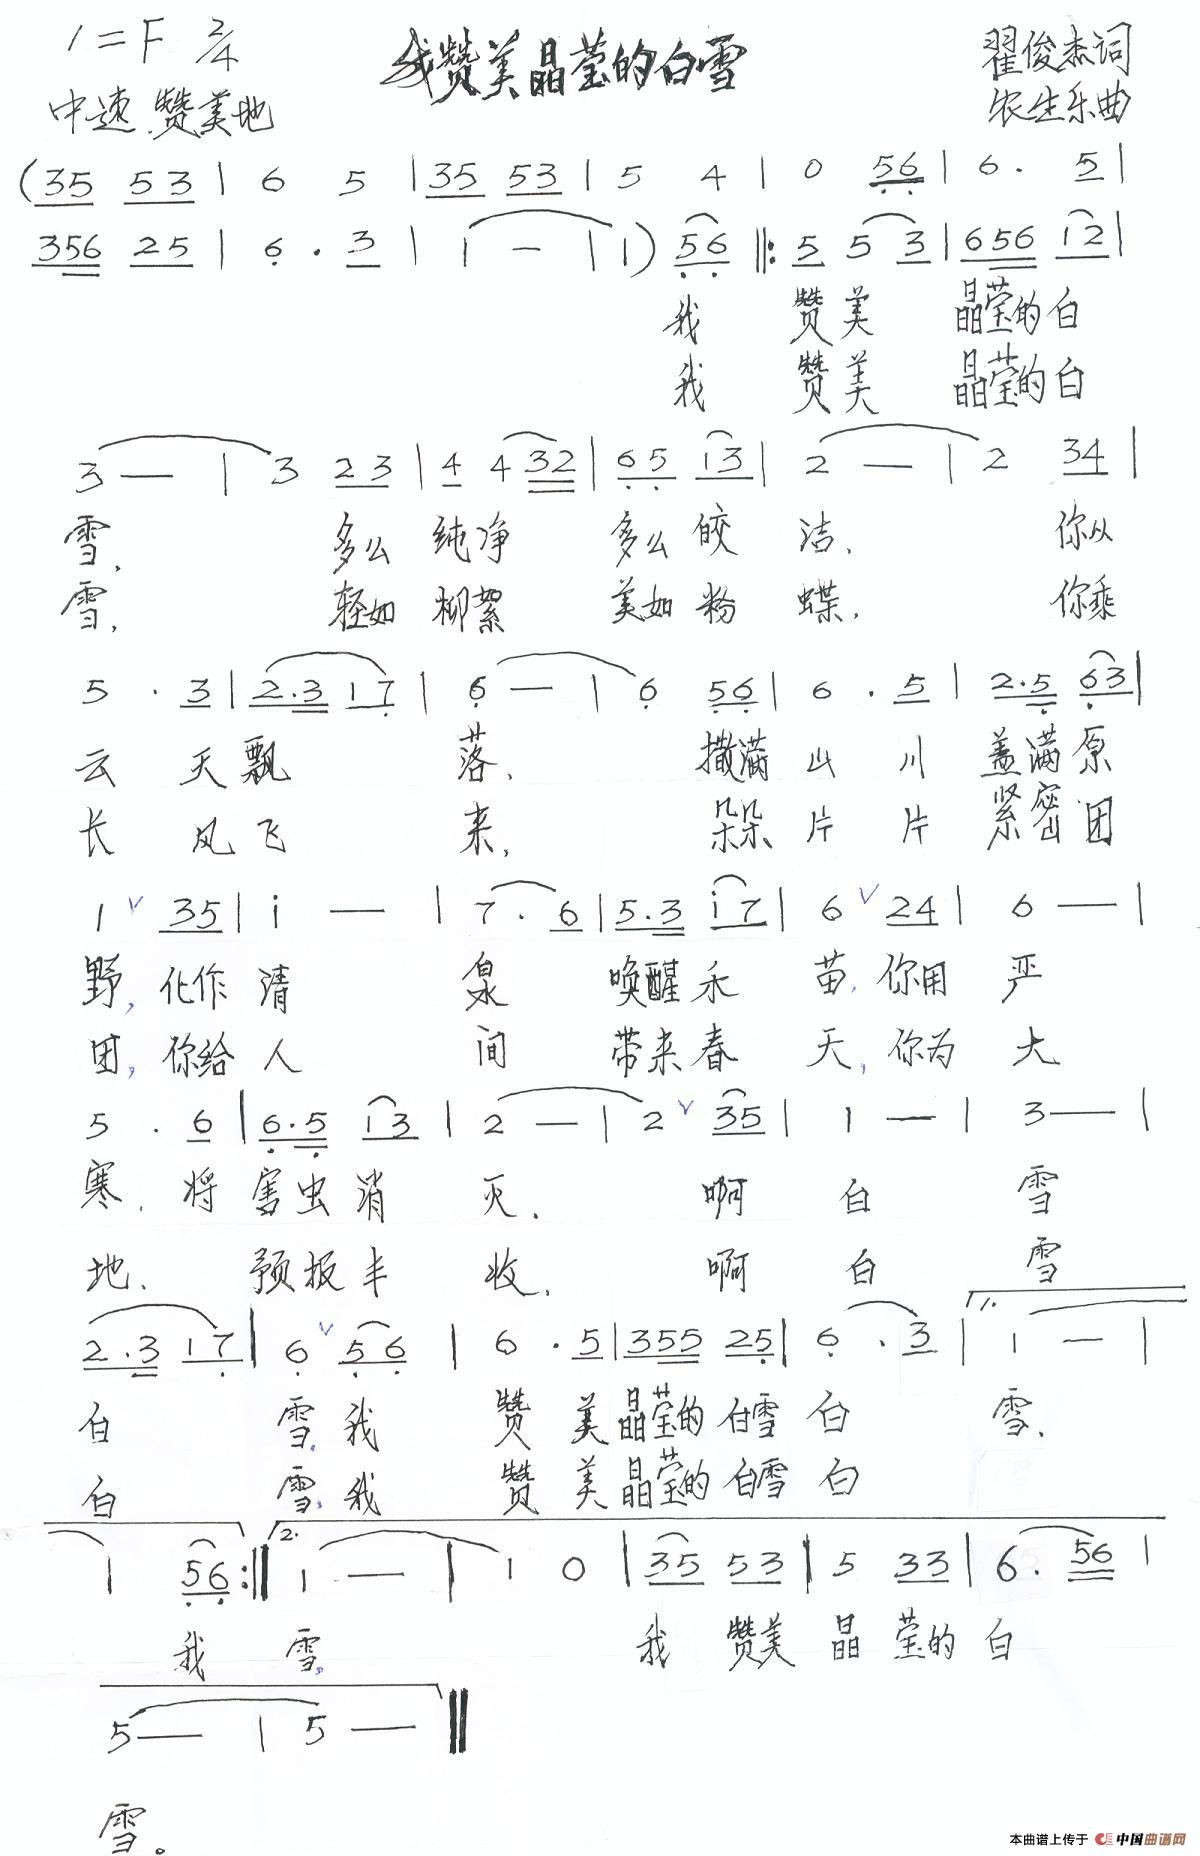 1=F 2/4 我赞美晶莹的白雪 翟俊杰词
中速 赞美地 农生乐曲
(35 53 | 6 5 | 35 53 | 5 4 | 0 56 | 6. 5 |
356 25 | 6. 3 | 1 — | 1) 56 ‖: 5 5 3 | 656 12 |
我 赞美 晶莹的白
我 赞美 晶莹的白
3 — | 3 23 | 4 4 32 | 65 13 | 2 — | 2 34 |
雪, 多么 纯净 多么皎 洁, 你从
雪, 轻如 柳絮 美如粉 蝶, 你乘
5. 3 | 2.3 17 | 6 — | 6 56 | 6. 5 | 2.5 63 |
云 天飘 落, 撒满 山 川 盖满原
长 风飞 来, 朵朵 片 片 紧密团
1 ∨ 35 | i — | 7. 6 | 5.3 i7 | 6 ∨ 24 | 6 — |
野, 化作 清 泉 唤醒禾 苗, 你用 严
团, 你给 人 间 带来春 天, 你为 大
5. 6 | 6.5 13 | 2 — | 2 ∨ 35 | 1 — | 3 — |
寒, 将 害虫消 灭, 啊 白 雪
地, 预报丰 收, 啊 白 雪
1.
2.3 17 | 6 ∨ 56 | 6. 5 | 355 25 | 6. 3 | 1 — |
白 雪, 我 赞 美 晶莹的 白雪 白 雪,
白 雪, 我 赞 美 晶莹的 白雪 白
2.
1 56 :‖ 1 — | 1 0 | 35 53 | 5 33 | 6. 56 |
我 雪, 我 赞美 晶 莹的 白
5 — | 5 — ‖
雪。
本曲谱上传于 中国曲谱网